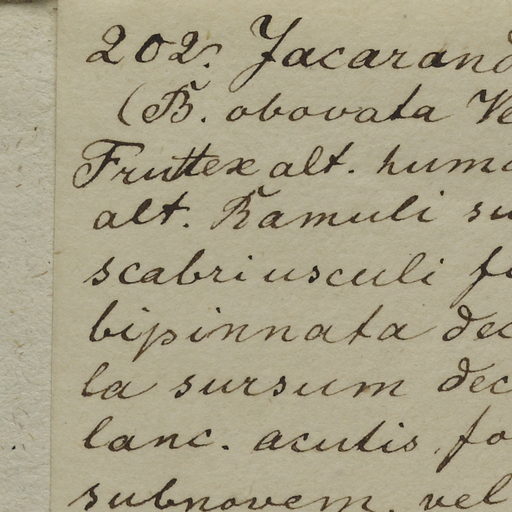 202. Jacarand
(B. obovata Ve
Fruttex alt. huma
alt. Ramuli su
scabriusculi fo
bipinnata dec
la sursum dec
lanc. acutis, fo
subnovem, vel